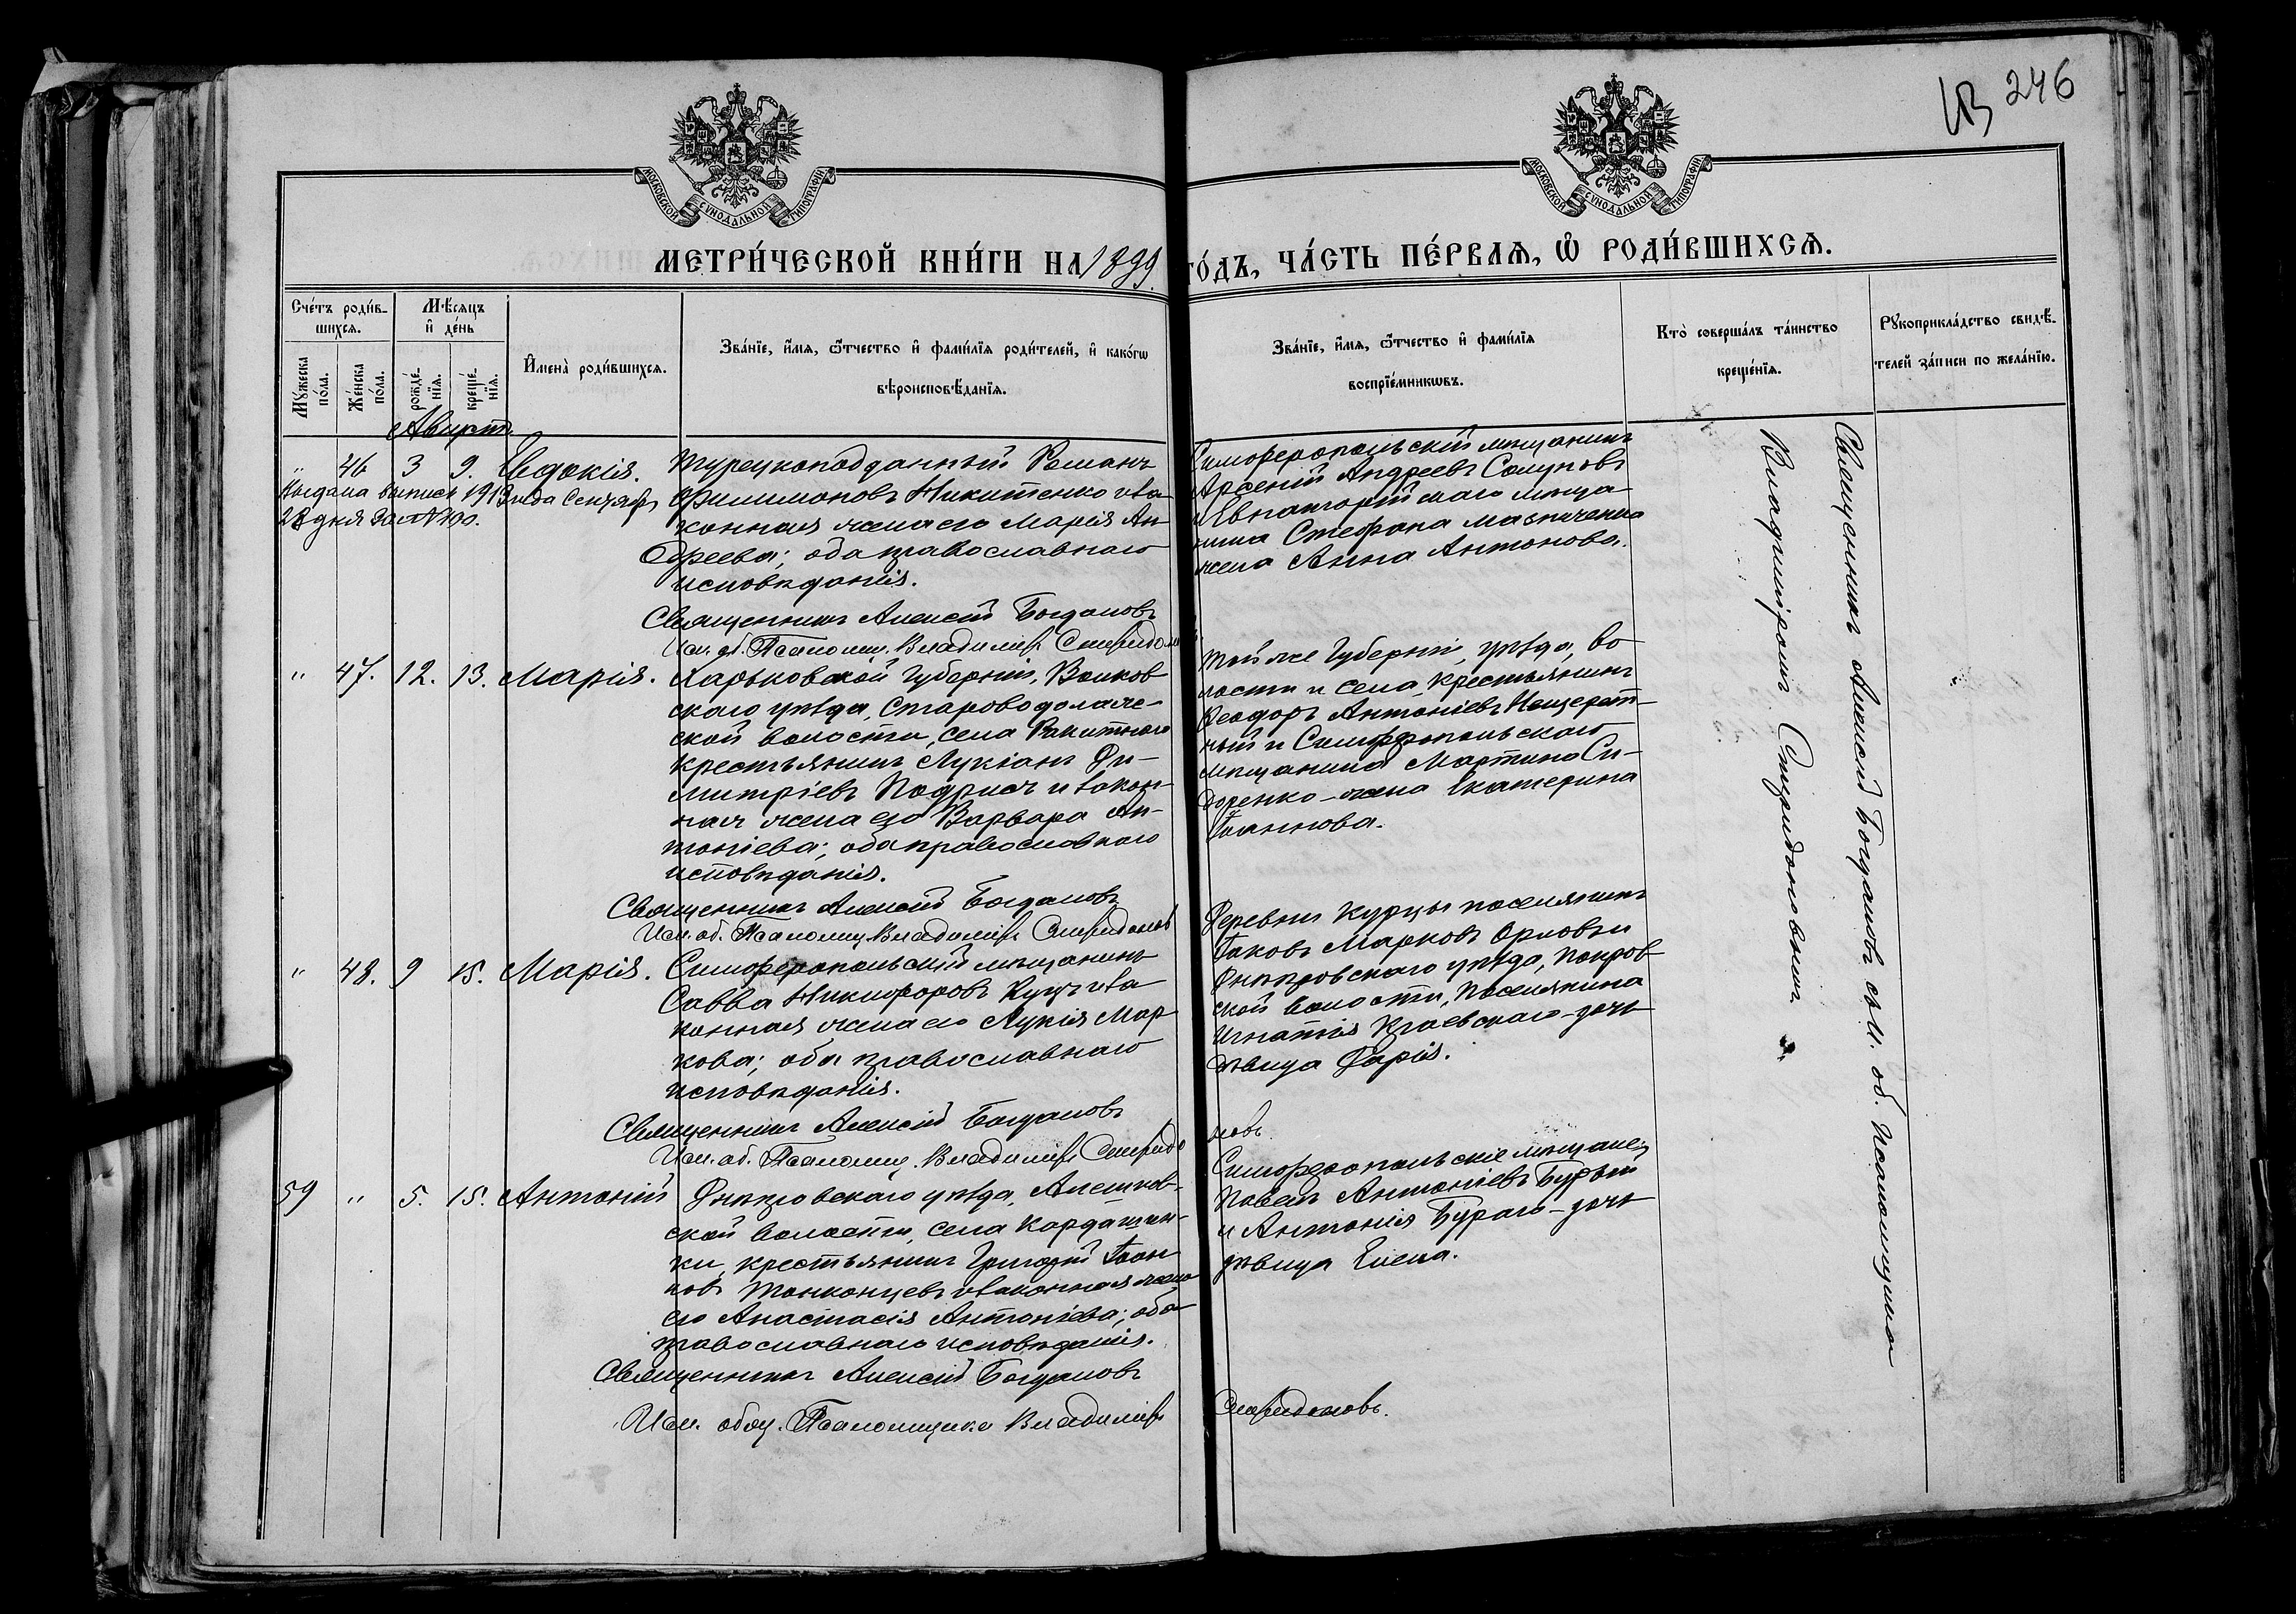 246
МОСКОВСКОЙ СѴНОДАЛЬНОЙ ТИПОГРАФІИ
МОСКОВСКОЙ СѴНОДАЛЬНОЙ ТИПОГРАФІИ
МЕТРИ́ЧЕСКОЙ КНИ́ГИ НА 1899 ГО́ДЪ, ЧА́СТЬ ПЕ́РВАѦ, Ѽ РОДИ́ВШИХСѦ.
Сче́тъ роди́в-
шихсѧ.
Мꙋ́жеска
по́ла.
Же́нска
по́ла.
Мѣ́сѧцъ
и҆ де́нь
рожде́-
нїѧ.
креще́-
нїѧ.
И҆мена̀ роди́вшихсѧ.
Зва́нїе, и҆́мѧ, ѻ҆́тчество и҆ фами́лїѧ роди́телей, и҆ како́гѡ
вѣроисповѣ́данїѧ.
Зва́нїе, и҆́мѧ, ѻ҆́тчество и҆ фами́лїѧ
воспрїе́мникѡвъ.
Кто̀ соверша́лъ та́инство
креще́нїѧ.
Рꙋкоприкла́дство свидѣ́-
телей за́писи по жела́нїю.
Августъ.
" 46 3 9. Евдокія.
Выдана выпись 1913 года Сентября
28 дня за № 190.
Турецкоподданный Романъ
Филимоновъ Никитенко и за-
конная жена его Марія Ан-
дреева; оба православнаго
исповѣданія.
Священникъ Алексій Богдановъ
Исп. об. Псаломщ. Владиміръ Спиридоновъ
Симферопольскій мѣщанинъ
Арсеній Андреевъ Солуновъ
и Евпаторійскаго мѣща-
нина Стефана
жена Анна Антонова.
" 47. 12. 13. Марія.
Харьковской губерніи, Валков-
скаго уѣзда, Староводолаж-
ской волости, села Ракитнаго
крестьянинъ Лукіанъ Ди-
митріевъ Подрига и закон-
ная жена его Варвара Ан-
тоніева; оба православнаго
исповѣданія.
Священникъ Алексій Богдановъ
Исп. об. Псаломщ. Владиміръ Спиридоновъ
Той же губерніи, уѣзда, во-
лости и села, крестьянинъ
Ѳеодоръ Антоніевъ Нещерет-
ный и Симферопольскаго
мѣщанина Мартина Си-
доренко - жена Екатерина
Іоаннова.
" 48. 9 15. Марія.
Симферопольскій мѣщанинъ
Савва Никифоровъ Куцъ и за-
конная жена его Лукія Мар-
кова; оба православнаго
исповѣданія.
Священникъ Алексій Богдановъ
Исп. об. Псаломщ. Владиміръ Спиридо
новъ
Деревни Курцы поселянинъ
Іаковъ Марковъ Орловъ и
Днѣпровскаго уѣзда, Покров-
ской волости, поселянина
Игнатія Краевскаго - дочь
дѣвица Дарія.
59 " 5. 15. Антоній
Днѣпровскаго уѣзда, Алешков-
ской волости, села Кардашин-
ки, крестьянинъ Григорій Іоан-
новъ Тонконцевъ и законная жена
его Анастасія Антоніева; оба
православнаго исповѣданія.
Священникъ Алексій Богдановъ
Исп. обяз. Псаломщика Владиміръ
Спиридоновъ.
Симферопольскіе мѣщане:
Павелъ Антоніевъ Бурый
и Антонія Бураго - дочь
дѣвица Елена.
Священникъ Алексій Богдановъ съ И. об. Псаломщика
Владиміромъ Спиридоновымъ.